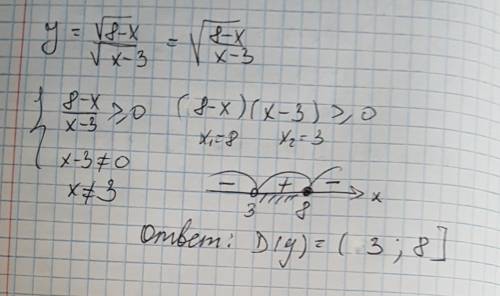 y = √(8-x)/√(x-3) = √((8-x)/(x-3))
{ (8-x)/(x-3) ≥ 0 (8-x)(x-3) ≥ 0
x-3 ≠ 0 x₁=8 x₂=3
x ≠ 3 - + - x
3 8
Ответ: D(y) = (3; 8]